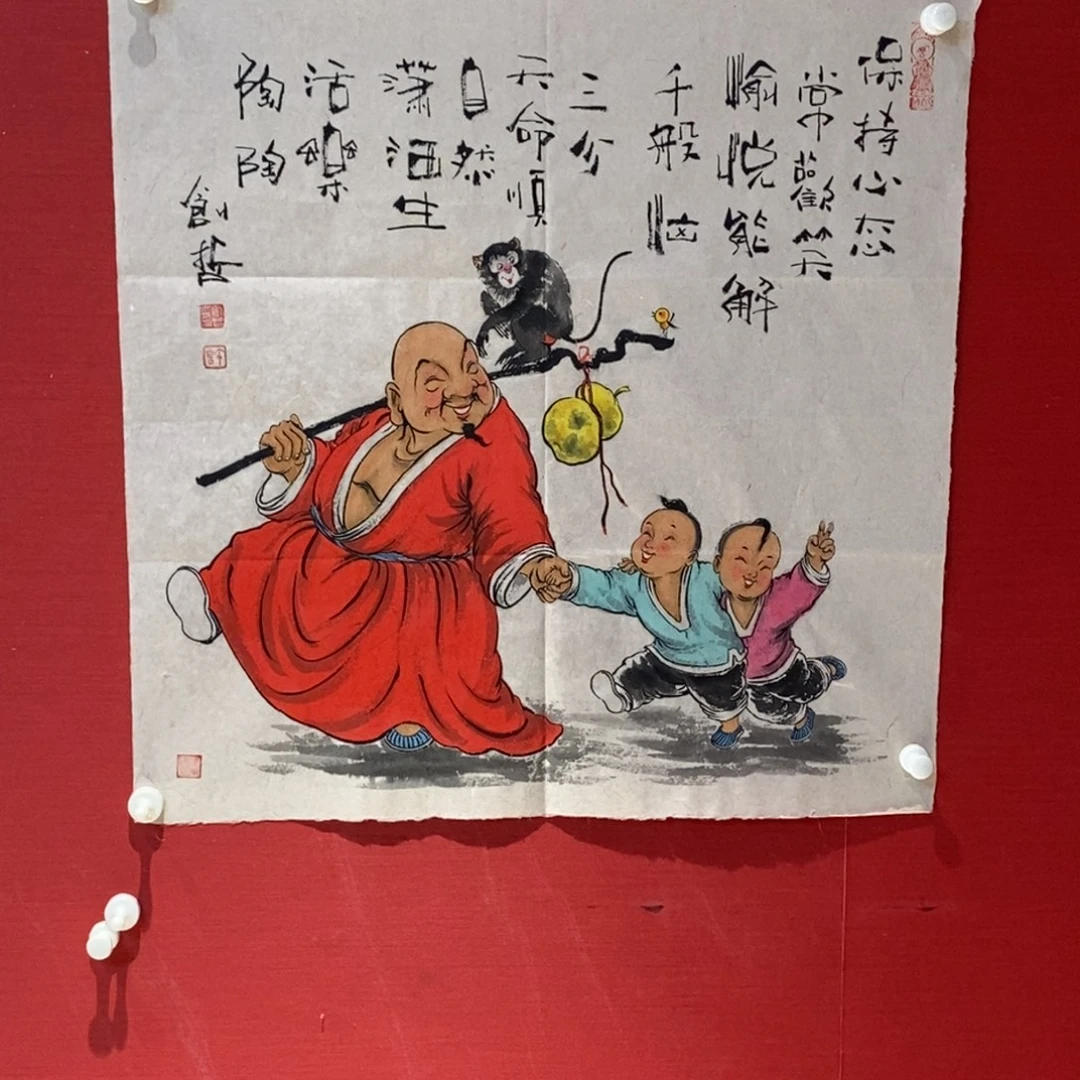 保持心态
常歡笑
愉悦能解
千般恼
三分
天命順
自然
潇洒生
活樂
陶陶
創哲